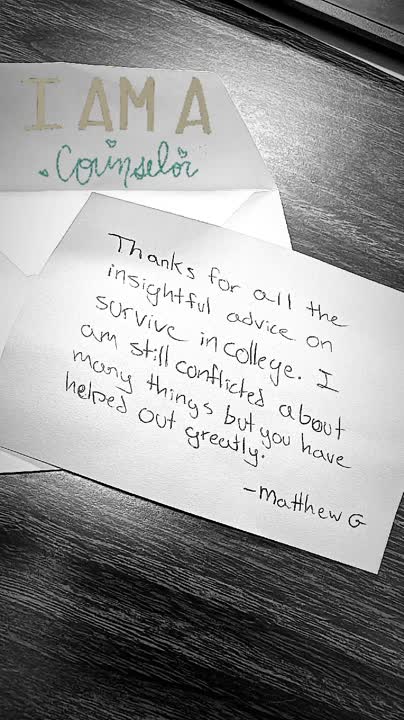 I AM A
Counselor
Thanks for all the
insightful advice on
survive in college. I
am still conflicted about
many things but you have
helped out greatly.
-Matthew G